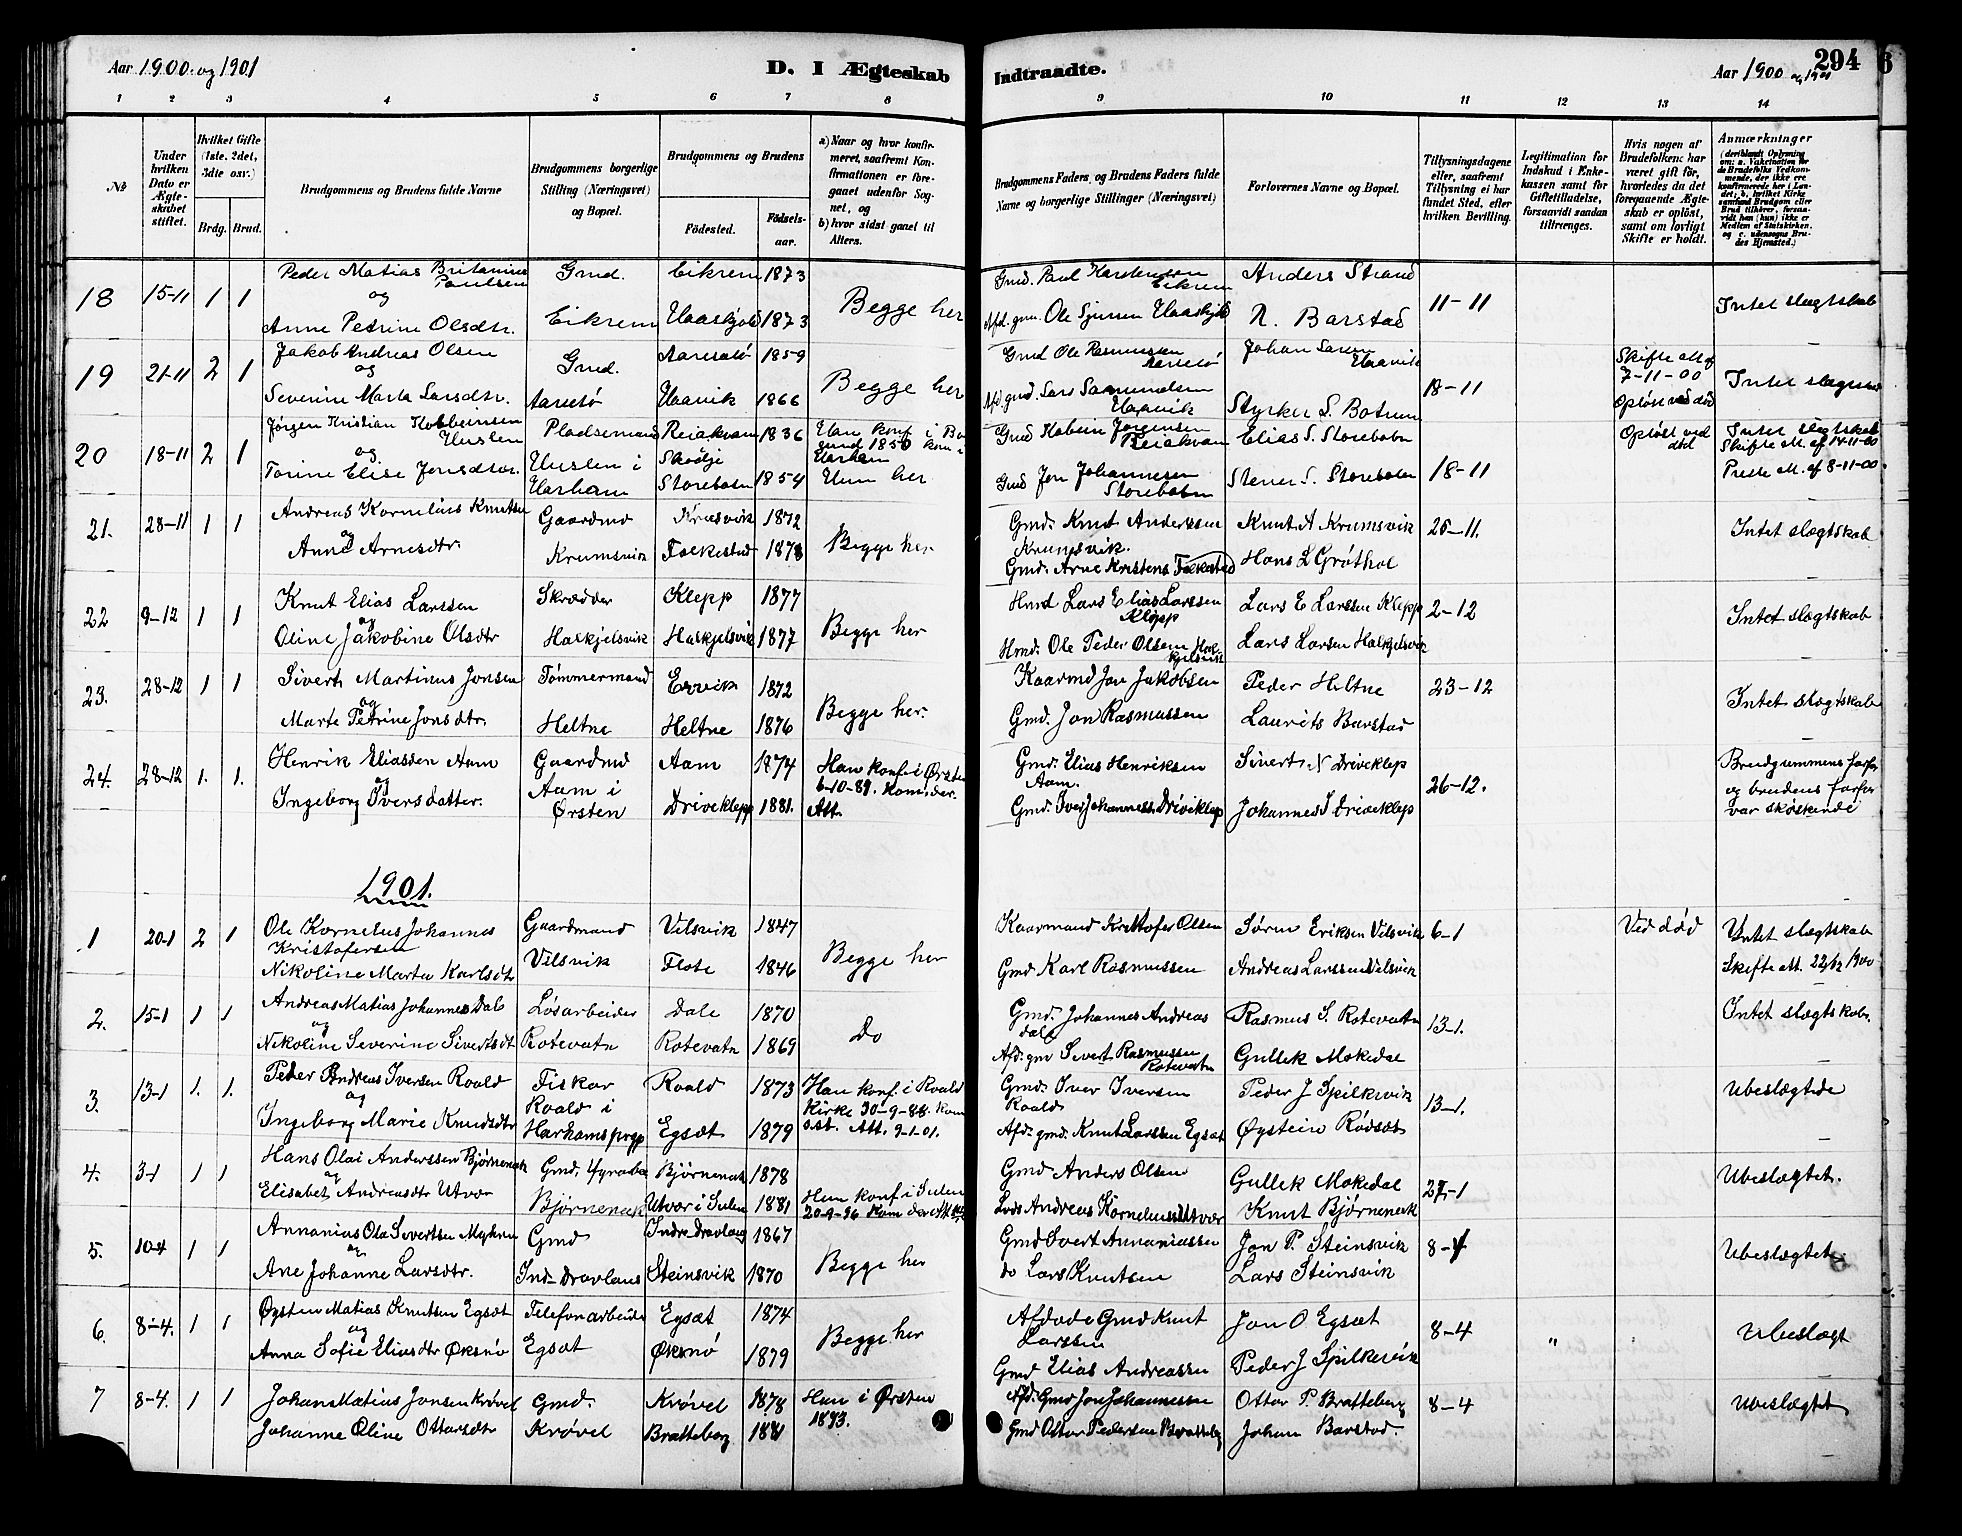 Aar 1900 og 1901
D. I Ægteskab
Indtraadte.
Aar 1900 og 1901
294
6
1 2 3 4 5 6 7 8 9 10 11 12 13 14
№
Under hvilken Dato er Ægteskabet stiftet.
Hvilket Gifte (1ste, 2det, 3die osv.)
Brdg. Brud.
Brudgommens og Brudens fulde Navne
Brudgommens borgerlige Stilling (Næringsvei) og Bopæl.
Brudgommens og Brudens
Födested.
Födselsaar.
a) Naar og hvor konfirmeret, saafremt Konfirmationen er foregaaet udenfor Sognet, og
b) hvor sidst gaaet til Alters.
Brudgommens Faders, og Brudens Faders fulde Navne og borgerlige Stillinger (Næringsvei)
Forlovernes Navne og Bopæl.
Tillysningsdagene eller, saafremt Tillysning ei har fundet Sted, efter hvilken Bevilling.
Legitimation for Indskud i Ænkekassen samt for Giftetilladelse, forsaavidt saadan tiltrænges.
Hvis nogen af Brudefolkene har været gift för, hvorledes da det foregaaende Ægteskab er oplöst, samt om lovligt Skifte er holdt.
Anmærkninger
18 15-11 1 1 Peder Matias Britanius Paulsen Gmd. Eikrem 1873 Begge her Gmd. Paul Karstensen Eikrem Anders Strand 11-11 Intet slægtskab
og
Anne Petrine Olsdtr. Eikrem Haaskjold 1873 Afd. gm. Ole Sjursen Haaskjold R. Barstad
19 21-11 2 1 Jakob Andreas Olsen Gmd. Aarsetø 1859 Begge her Gmd Ole Rasmussen Aarsetø Johan Haavik 18-11 Skifte at af 7-11-00 Opløst ved død Intet slægtsk
og
Severine Marta Larsdtr. Aarsetø Haavik 1866 Afd. gmd. Lars Samuelsen Haavik Styrker S. Botnen
20 18-11 2 1 Jørgen Kristian Pladsemand Reiakvam 1836 Han konf. i 1850 kom i Harham Gmd Jørgensen Reiakvam Elias S. Storebotn 18-11 Opløst ved død Intet slægtskab Skifte At. af 14-11-00
og
Torine Elise Jonsdtr. i Harham Skodje Storebotn 1854 Hun her Gmd Jon Johannesen Storebotn Stener S. Storebotn Preste At. af 8-11-00
21. 28-11 1 1 Andreas Kornelius Knutsen Gaardmd Krumsvik 1872 Begge her. Gmd. Knut Anderssen Krumsvik. Knut A Krumsvik 25-11. Intet slægtskab
og
Anne Arnesdtr. Krumsvik Folkestad 1878 Gmd. Arne Kristens Folkestad Hans L Grøthol
22 9-12 1 1 Knut Elias Larssen Skrædder Klepp 1877 Begge her Hmd Lars Elias Larssen Klepp Lars E Larssen Klepp 2-12 Intet slægtskab
og
Oline Jakobine Olsdtr Halkjelsvik Halkjelsvik 1877 Hmd. Ole Peder Olsen Halkjelsvik Lars Larsen Halkjelsvik
23. 28-12 1 1 Sivert Martinus Jonsen Tømmermand Ervik 1872 Begge her. Kaarmd Jon Jakobsen Peder Heltne 23-12 Intet slægtskab
og
Marte Petrine Jonsdtr. Heltne Heltne 1876 Gmd. Jon Rasmussen Laurits Barstad
24. 28-12 1. 1. Henrik Eliassen Aam Gaardmd Aam 1874 Han konf. i Ørsten 6-10-89. Kom. der. Att. Gmd. Elias Henriksen Aam. Sivert N Driveklep 26-12. Brudgummens farfar og brudens farfar var søskende
og
Ingeborg Iversdatter. Aam i Ørsten Driveklepp 1881. Gmd. Iver Johanness. Driveklep Johannes I Driveklep
1901.
1 20-1 2 1 Ole Kornelius Johannes Kristofersen Gaardmand Vilsvik 1847 Begge her Kaarmand Kristofer Olsen Søren Eriksen Vilsvik 6-1 Ved død Intet slægtskab
Nikoline Marta Karlsdtr Vilsvik Flote 1846 Gmd. Karl Rasmussen Andreas Larssen Vilsvik Skifte At. 22/12 1900
2. 15-1 1 1 Andreas Matias Johannes Dale Løsarbeider Dale 1870 Do Gmd. Johannes Andreas Dale Rasmus S. Rotevatn 13-1. Intet slægtskab.
og
Nikoline Severine Sivertsdt Rotevatn Rotevatn 1869 Afd. gm Sivert Rasmussen Rotevatn Gullek Mokedal
3. 13-1 1. 1. Peder Andreas Iversen Roald Fisker Roald 1873 Han konf. i Roald Kirke 30-9-88. Kom Gmd. Iver Iversen Roald Peder J Spilkevik 13-1. Ubeslægtede
og
Ingeborg Marie Knudsdtr Roald i Harhams prgp Egsæt 1879 Att. 9-1-01. Afd. gmd. Knut Larssen Egsæt Øystein Rødset
4. 3-1 1 1 Hans Olai Anderssen Bjørnenak Gmd, Bjørnenak 1878 Gmd Anders Olsen Gullek Mokedal 27-1 Ubeslægtet.
og
Elisabet Andreasdtr Utvær Bjørnenak Utvær i Sulen 1881 Hun konf. i Sulen 20-9-96 Kom der Lods Andreas Kornelius Utvær Knut Bjørnenak
5. 10-4 1 1 Annanias Ola Sivertsen Gmd Indre Dravlaus 1867 Begge her Gmd Sivert Annaniassen Jon P. Steinsvik 8-4 Ubeslægtet
og
Ane Johanne Larsdtr. Ind-Dravlaus Steinsvik 1870 do Lars Knutsen Lars Steinsvik
6. 8-4. 1 1 Øysten Matias Knutsen Egsæt Telefonarbeider Egsæt 1874 Begge her Afdøde Gmd Knut Larssen Jon O Egsæt 8-4 " Ubeslægt
og
Anna Sofie Eliasdtr Øksnø Egsæt Øksnø 1879 Gmd Elias Andreassen Peder J Spilkevik
7 8-4. 1 1 Johan Matias Jonsen Krøvel Gmd. Krøvel 1878 Han i Ørsten 1893. Afd. Gmd Jon Johannessen Ottar P. Bratteberg 8-4 Ubeslægtet
Johanne Oline Ottarsdtr Krøvel Bratteberg 1881 Gmd Ottar Pedersen Bratteberg Johan Barstad.